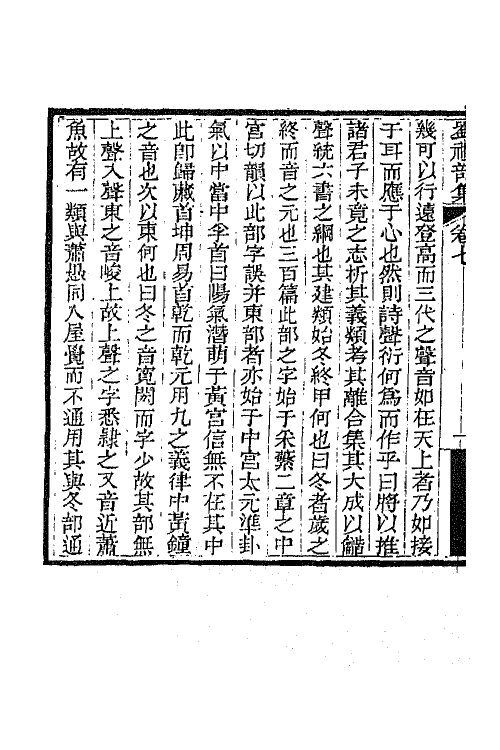 劉禮部集 卷七
幾可以行遠登高而三代之聲音如在天上者乃如接
于耳而應于心也然則詩聲衍何爲而作乎曰將以推
諸君子未竟之志析其義類考其離合集其大成以諧
聲統六書之綱也其建類始冬終甲何也曰冬者歲之
終而音之元也三百篇此部之字始于采蘩二章之中
宮切韻以此部字誤并東部者亦始于中宮太元準卦
氣以中當中孚首曰陽氣潛萌于黃宮信無不在其中
此卽歸藏首坤周易首乾而乾元用九之義律中黃鐘
之音也次以東何也曰冬之音寬閎而字少故其部無
上聲入聲東之音峻上故上聲之字悉隸之又音近蕭
魚故有一類與蕭愚同入屋覺而不通用其與冬部通